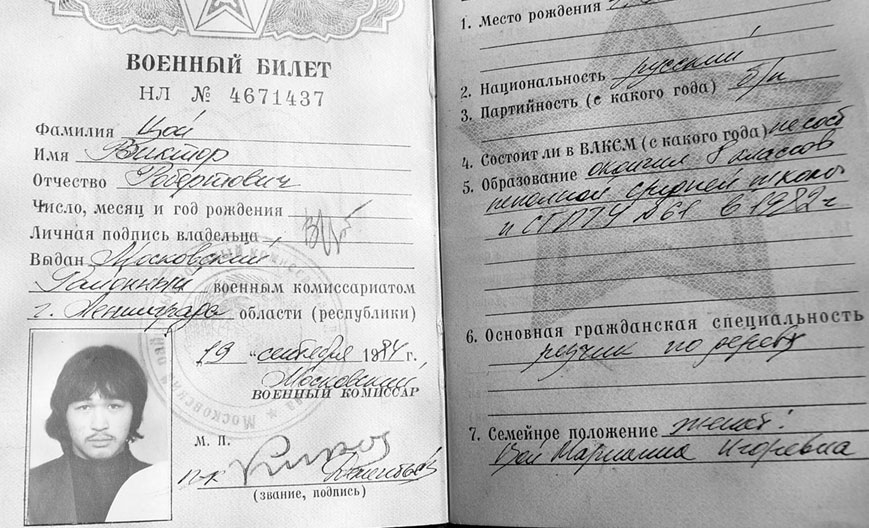 ВОЕННЫЙ БИЛЕТ
НЛ № 4671437
Фамилия Цой
Имя Виктор
Отчество Робертович
Число, месяц и год рождения
Личная подпись владельца
Выдан Московский
Районный военным комиссариатом
г. Ленинграда области (республики)
19 сентября 1984 г.
Московский
ВОЕННЫЙ КОМИССАР
М. П.
п-к
(звание, подпись)
1. Место рождения
2. Национальность русский
3. Партийность (с какого года) б/п
4. Состоит ли в ВЛКСМ (с какого года) не сост
5. Образование окончил 8 классов
неполной средней школы
и СГПТУ №61 в 1982 г
6. Основная гражданская специальность
резчик по дереву
7. Семейное положение женат:
Цой Марианна Игоревна